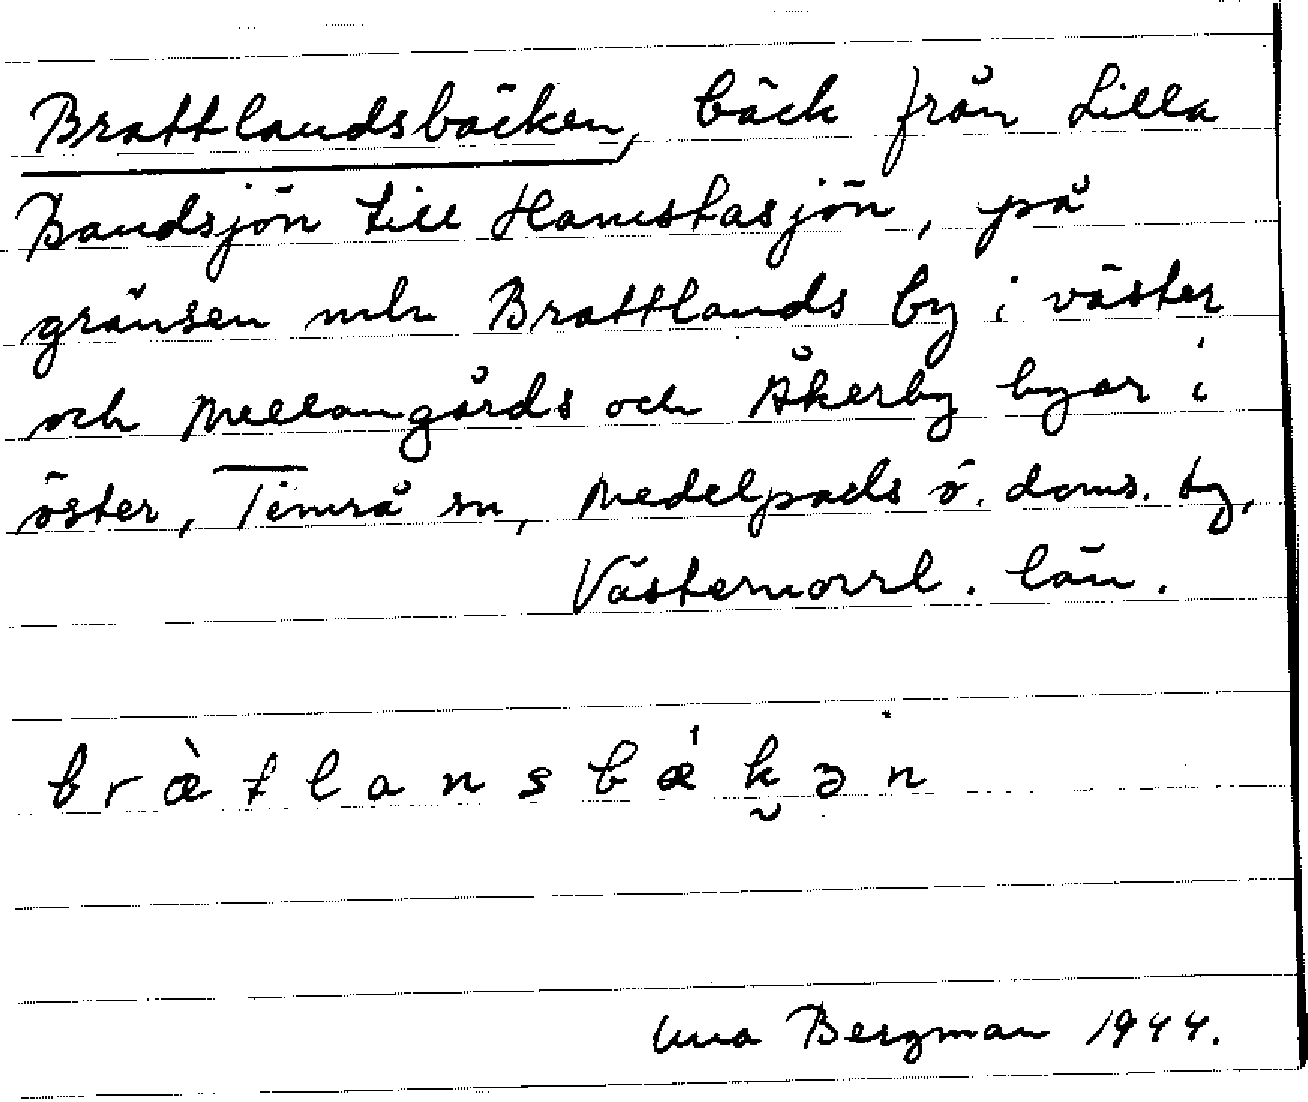 Brattlandsbäcken, bäck från Lilla
Bandsjön till Hamstasjön, på
gränsen mln Brattlands by i väster
och Mellangårds och Åkerby byar i
öster, Timrå sn, Medelpads ö. doms. tg,
Västernorrl. län.
bræ̀tlansbǽk̮ən
Una Bergman 1944.